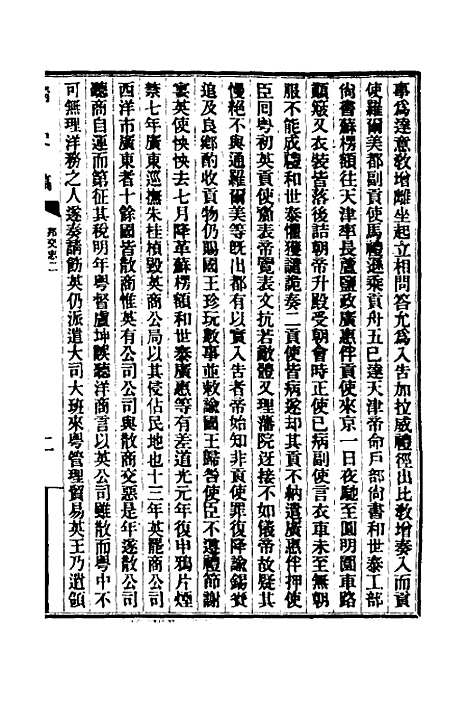 事為達意敎增離坐起立相問答允為入告加拉威禮徑出比敎增奏入而貢
使羅爾美都副貢使馬禮遜乘貢舟五已達天津帝命戶部尙書和世泰工部
尙書蘇楞額往天津率長蘆鹽政廣惠伴貢使來京一日夜馳至圓明園車路
顚簸又衣裝皆落後詰朝帝升殿受朝會時正使已病副使言衣車未至無朝
服不能成禮和世泰懼獲譴詭奏二貢使皆病遂却其貢不納遣廣惠伴押使
臣回粤初英貢使齎表帝覽表文抗若敵體又理藩院迓接不如儀帝故疑其
慢絕不與通羅爾美等旣出都有以實入告者帝始知非貢使罪復降諭錫賚
追及良鄕酌收貢物仍賜國王珍玩數事並敕諭國王歸咎使臣不遵禮節謝
宴英使怏怏去七月降革蘇楞額和世泰廣惠等有差道光元年復申鴉片煙
禁七年廣東巡撫朱桂楨毀英商公局以其侵佔民地也十三年英罷商公司
西洋市廣東者十餘國皆散商惟英有公司公司與散商交惡是年遂散公司
聽商自運而第征其稅明年粤督盧坤誤聽洋商言以英公司雖散而粤中不
可無理洋務之人遂奏請飭英仍派遣大司大班來粤管理貿易英王乃遣領
史稿
邦交志二
二